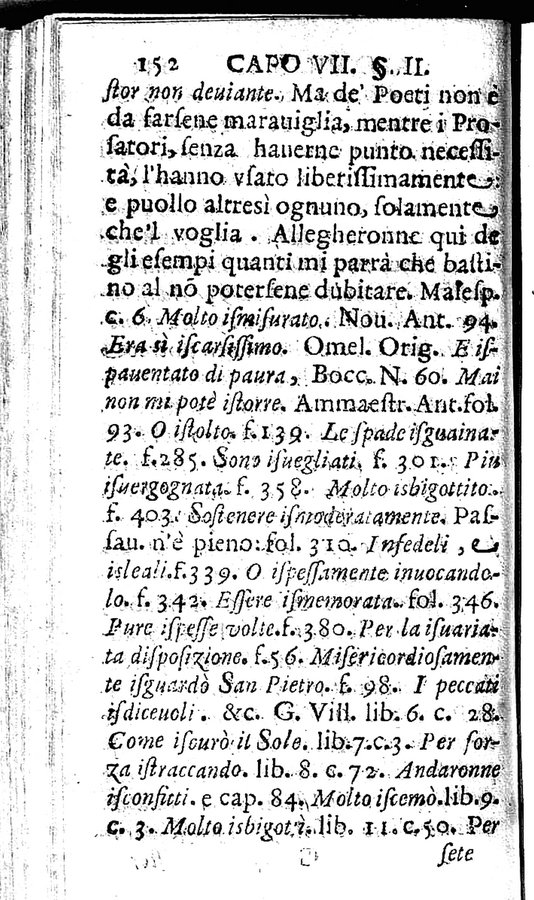 152 CAPO VII. §. II.
ſtor non deuiante. Ma de' Poeti non è
da farſene marauiglia, mentre i Pro-
ſatori, ſenza hauerne punto neceſſi-
tà, l'hanno vſato liberiſſimamente:
e puollo altresì ognuno, ſolamente,
che'l voglia. Allegheronne qui de
gli eſempi quanti mi parrà che baſti-
no al nō poterſene dubitare. Maleſp.
c. 6. Molto iſmiſurato. Nou. Ant. 94.
Era sì iſcarſiſſimo. Omel. Orig. E iſ-
pauentato di paura, Bocc. N. 60. Mai
non mi potè iſtorre. Ammaeſtr. Ant. fol.
93. O iſtolto. f. 139. Le ſpade iſguaina-
te. f. 285. Sono iſuegliati. f. 301. Piu
iſuergognata. f. 358. Molto isbigottito.
f. 403. Soſtenere iſmoderatamente. Paſ-
ſau. n'è pieno: fol. 310. Infedeli, e
isleali. f. 339. O iſpeſſamente inuocando-
lo. f. 342. Eſſere iſmemorata. fol. 346.
Pure iſpeſſe volte. f. 380. Per la iſuaria-
ta diſpoſizione. f. 56. Miſericordioſamen-
te iſguardò San Pietro. f. 98. I peccati
iſdiceuoli. &c. G. Vill. lib. 6. c. 28.
Come iſcurò il Sole. lib. 7. c. 3. Per for-
za iſtraccando. lib. 8. c. 72. Andaronne
iſconfitti. e cap. 84. Molto iſcemò. lib. 9.
c. 3. Molto isbigotì. lib. 11. c. 50. Per
ſete